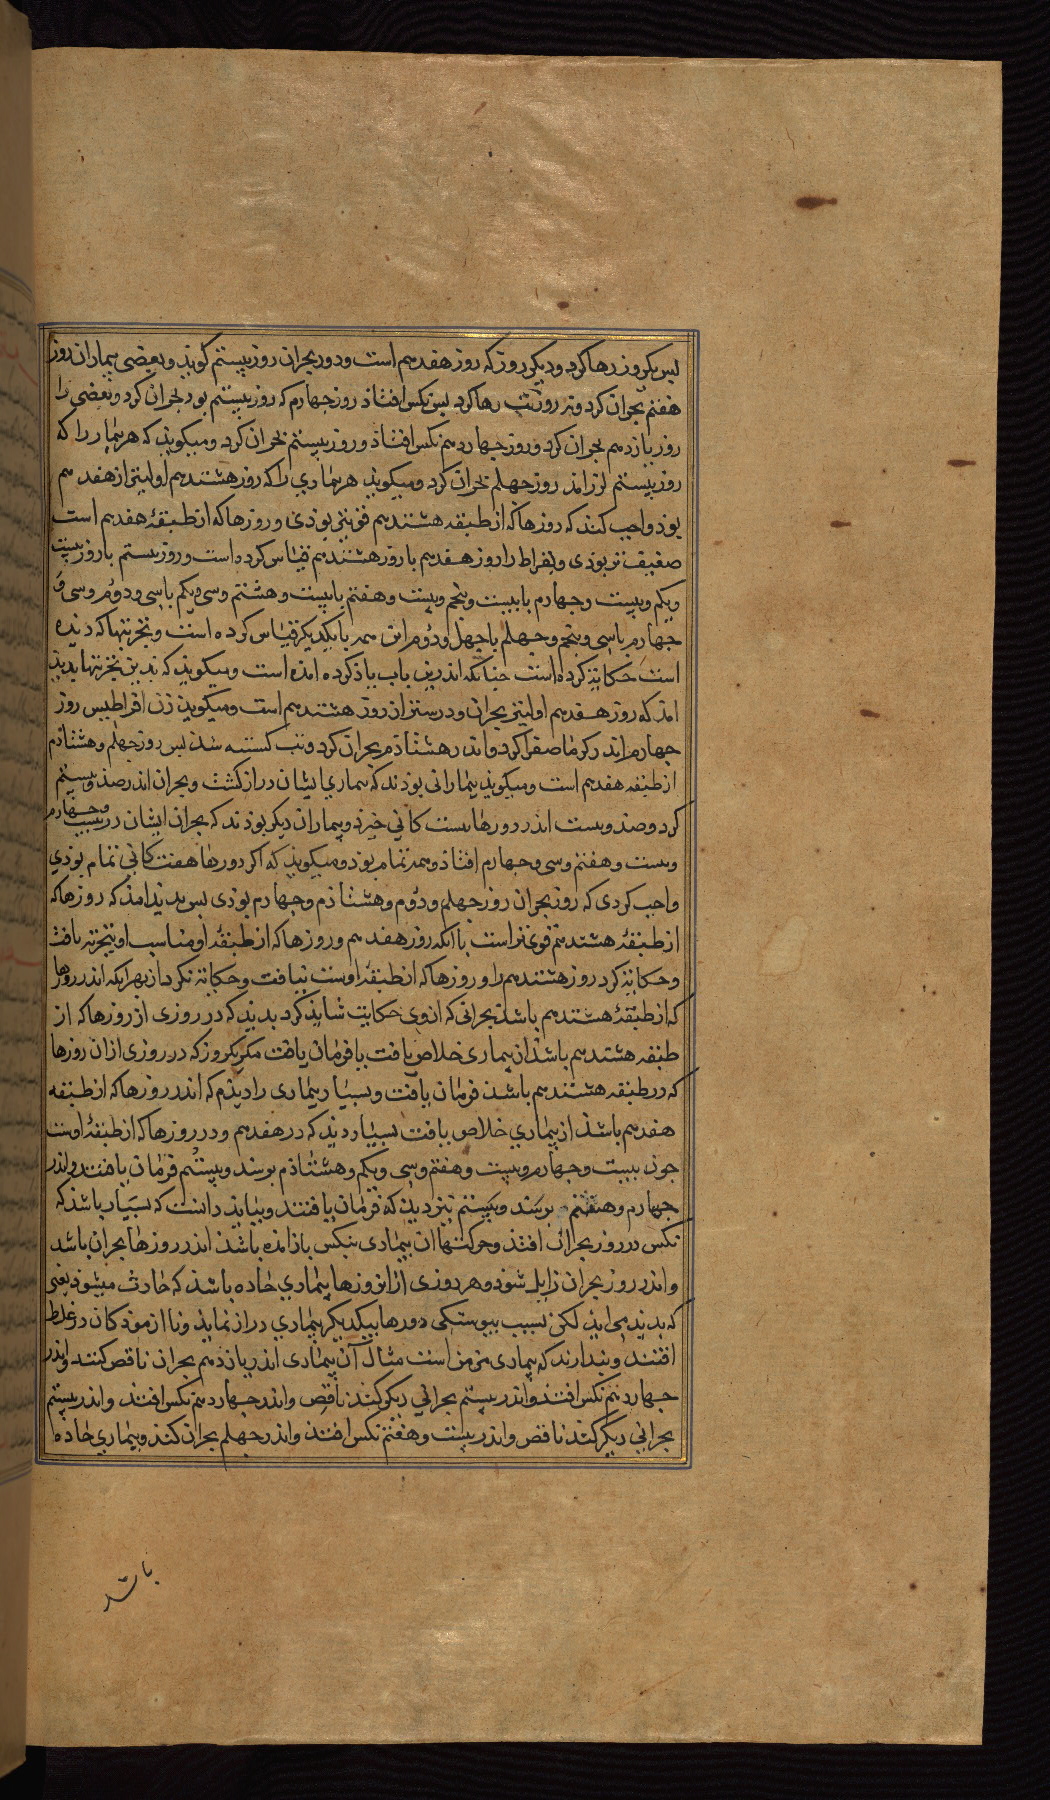 پس یکروز رها کرد و دیکر روز که روز هفدهم است و دور بحران روز بیستم کویند و بعضی بیماران روز
هفتم بحران کرد و نه روز تب رها کرد پس نکس افتاذ روز چهارم که روز بیستم بود بحران کرد و بعضی را
روز یازدهم بحران کرد و روز چهاردهم نکس افتاذ و روز بیستم بحران کرد و میکوید که هر بیمار را که
روز بیستم لرز امذ روز چهلم بحران کرد و میکوید هر بیماری را که روز هشتدهم اولیتر از هفدهم
بوذ واجب کند که روزها که از طبقه هشتدهم قوی‌تر بوذی و روزها که از طبقهٔ هفدهم است
ضعیف‌تر بوذی و بقراط را روز هفدهم با روز هشتدهم قیاس کرده است و روز بیستم با روز بیست
و یکم و بیست و چهارم با بیست و پنجم و بیست و هفتم با بیست و هشتم و سی و یکم با سی و دوم و سی و
چهارم با سی و پنجم و چهلم با چهل و دوم این همه با یکدیکر قیاس کرده است و تجربتها که دیده
است حکایت کرده است چنانکه اندرین باب یاذ کرده امذه است و میکوید که بدین تجربتها پدید
امذ که روز هفدهم اولیتر بحران و درستتر از روز هشتدهم است و میکوید زن اقراطیس روز
چهارم اندر کرما صفرا کرد و اندر هشتاذم بحران کرد و تب کسسته شذ پس روز چهلم و هشتاذم
از طبقه هفدهم است و میکوید بیمارانی بوذند که بیماری ایشان دراز کشت و بحران اندر صذ و بیستم
کرد و صذ و بیست اندر دورها بیست کانی خیزد و بیماران دیکر بوذند که بحران ایشان در بیست و چهارم
و بیست و هفتم و سی و چهارم افتاذ و همه تمام بوذ و میکوید که اکر دورها هفت کانی تمام بوذی
واجب کردی که روز بحران روز چهلم و دوم و هشتاذم و چهارم بوذی پس بدید امذ که روزها که
از طبقهٔ هشتدهم قوی‌تر است با انکه روز هفدهم و روزها که از طبقهٔ او مناسب او بتجربه یافت
و حکایت کرد روز هشتدهم را و روزها که از طبقهٔ اوست نیافت و حکایت نکرد از بهر انکه اندر روزها
که از طبقهٔ هشتدهم باشذ بحرانی که از وی حکایت شاید کرد بدید که در روزی از روزها که از
طبقه هشتدهم باشذ از بیماری خلاص یافت یا فرمان یافت مکر یکروز که در روزی از ان روزها
که در طبقه هشتدهم باشذ فرمان یافت و بسیار بیماری را دیذم که اندر روزها که از طبقه
هفدهم باشذ از بیماری خلاص یافت بسیار دیذ که در هفدهم و در روزها که از طبقهٔ اوست
چون بیست و چهارم و بیست و هفتم و سی و یکم و هشتاذم برسند و بیستم فرمان یافتند و اندر
چهارم و هفتم برسند و بیستم نیز دیذ که فرمان یافتند و بباید دانست که بسیار باشذ که
نکس در روز بحران افتذ و حرکتها ان بیماری بنکس باز امذه باشذ اندر روزها بحران باشد
و اندر روز بحران زایل شوذ و هر روزی از ان روزها بیماری حاده باشذ که حادث میشوذ یعنی
که بدید می‌اید لکن بسبب پیوستکی دورها بیکدیکر بیماری دراز نماید و نا ازموذکان در غلط
افتند و پندارند که بیماری مزمن است مثال آن بیماری اندر یازدهم بحران ناقص کند و اندر
چهاردهم نکس افتذ و اندر بیستم بحرانی دیکر کند ناقص و اندر چهاردهم نکس افتذ و اندر بیستم
بحرانی دیکر کند ناقص و اندر بیست و هفتم نکس افتذ و اندر چهلم بحران کند و بیماری حاده
باشد